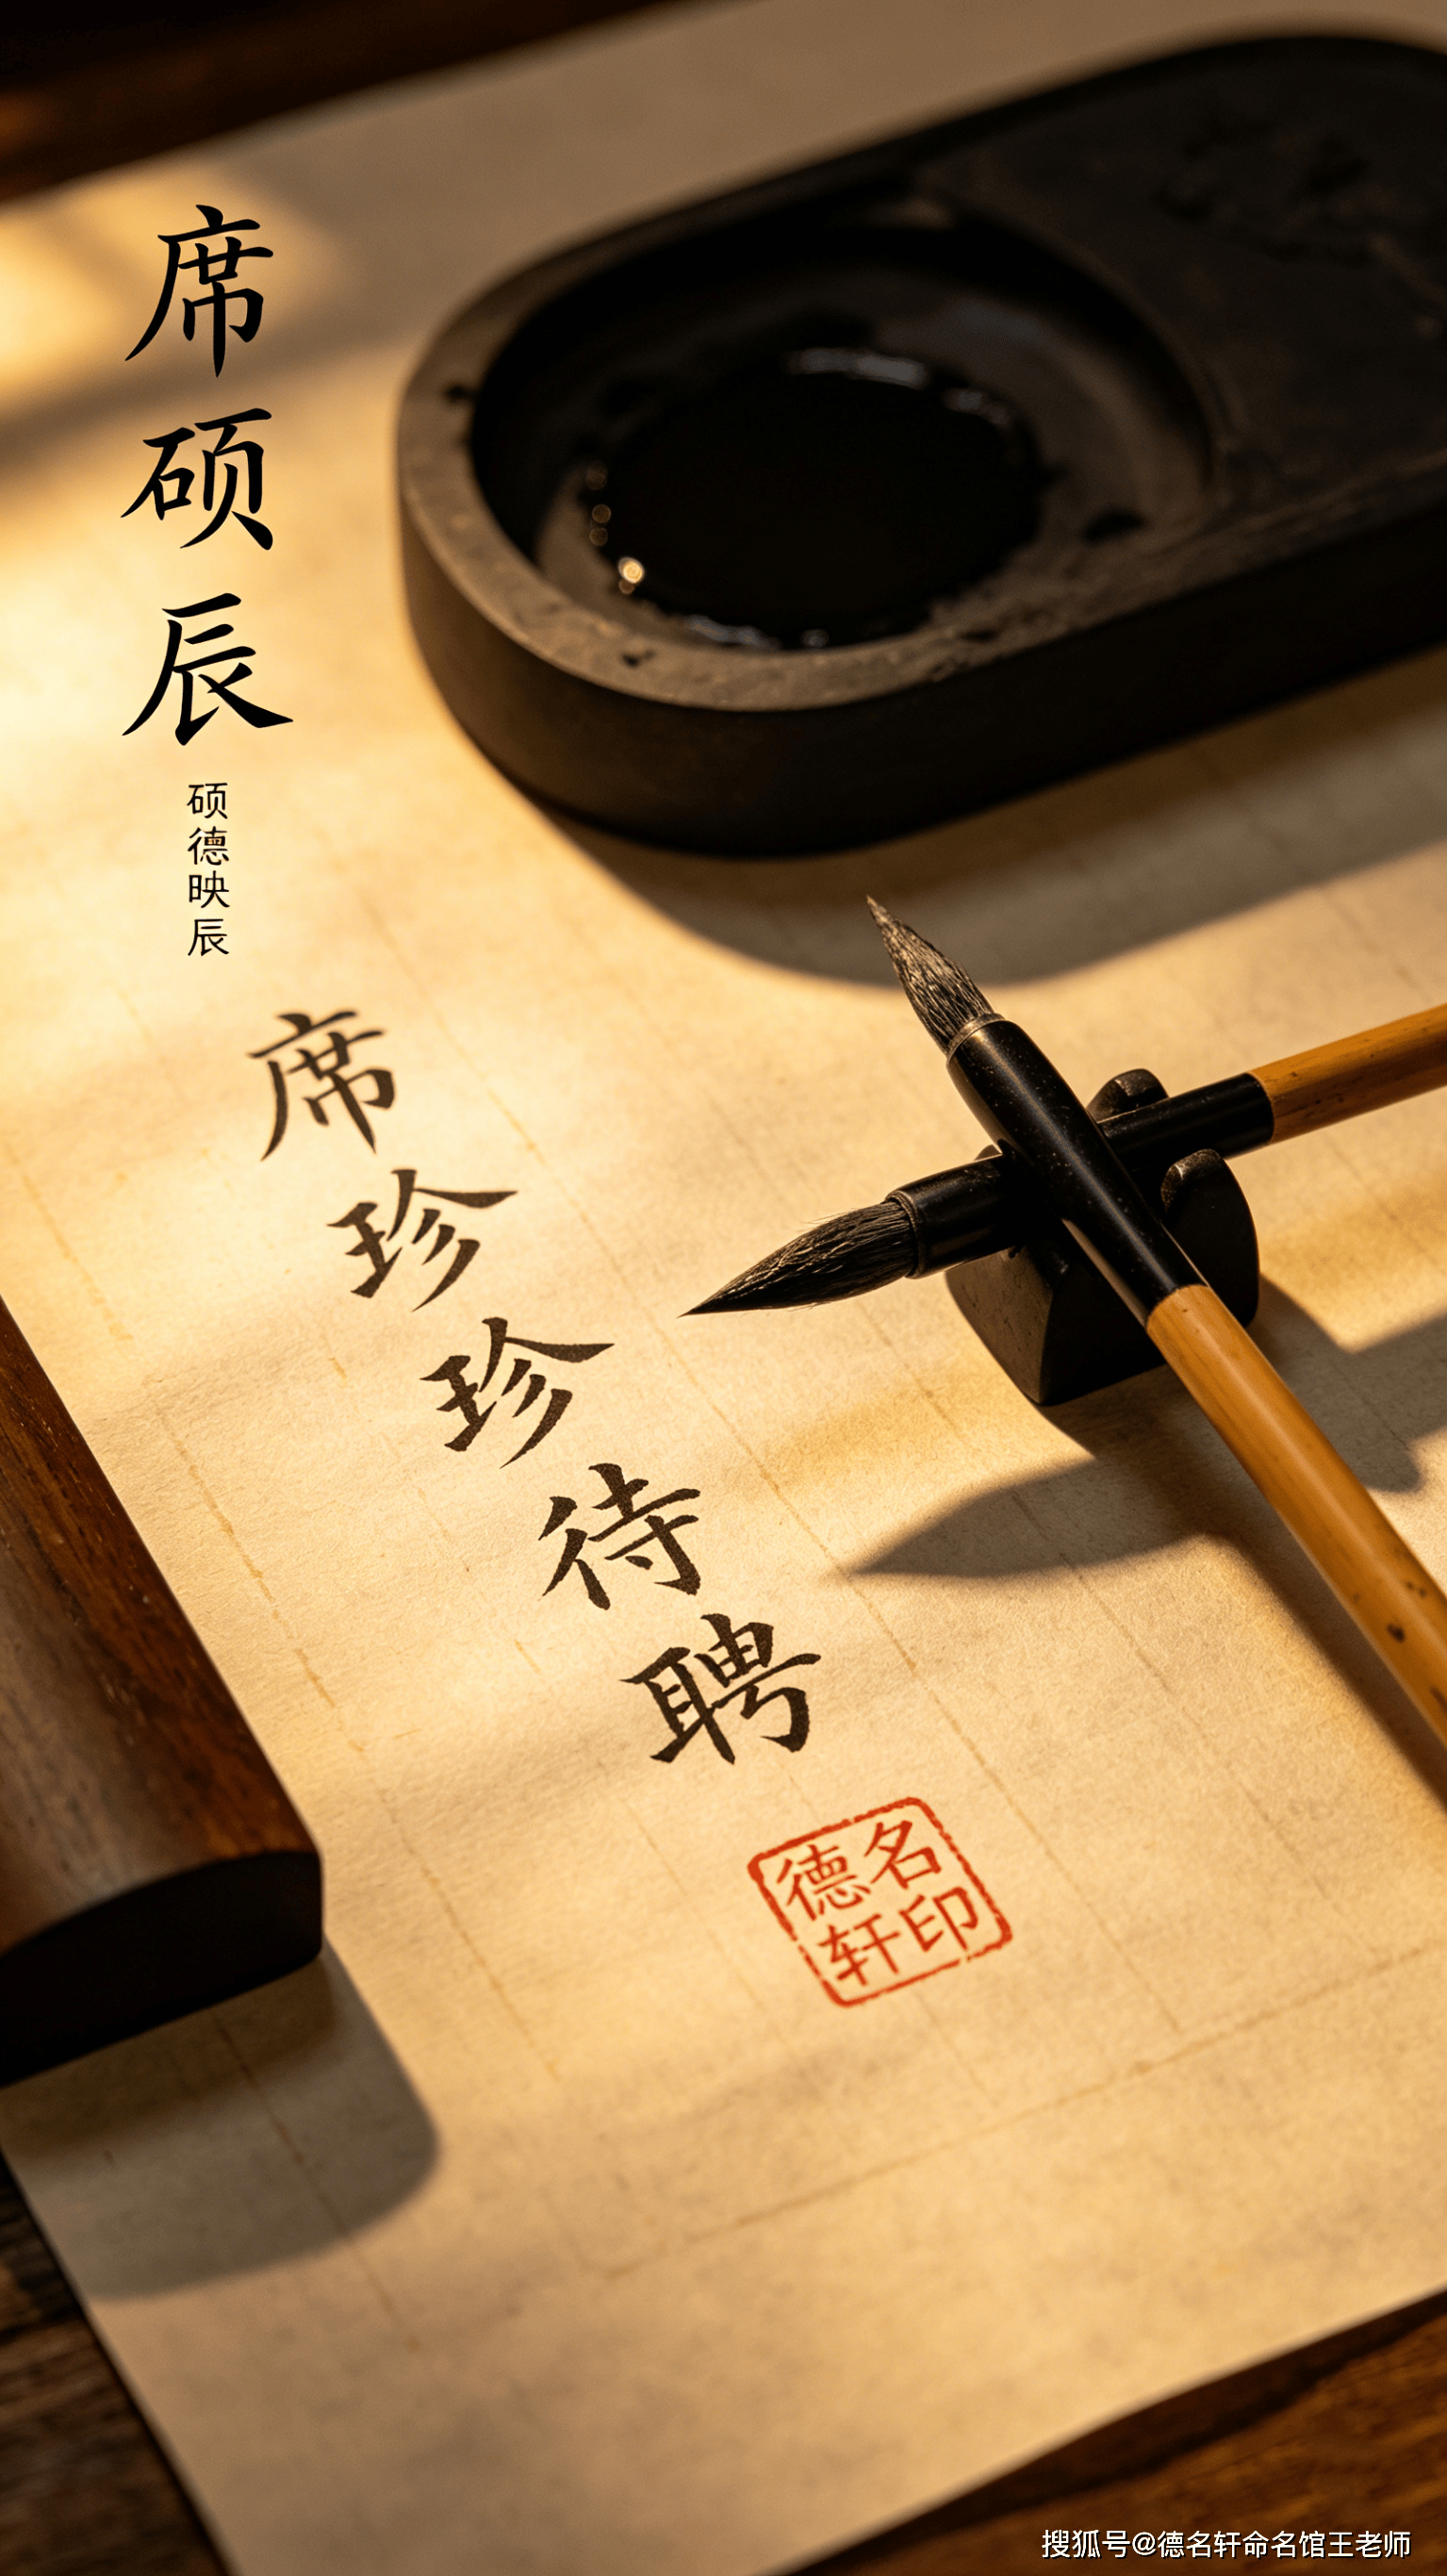 席硕辰
硕德映辰
席珍珍待聘
德名
轩印
搜狐号@德名轩命名馆王老师